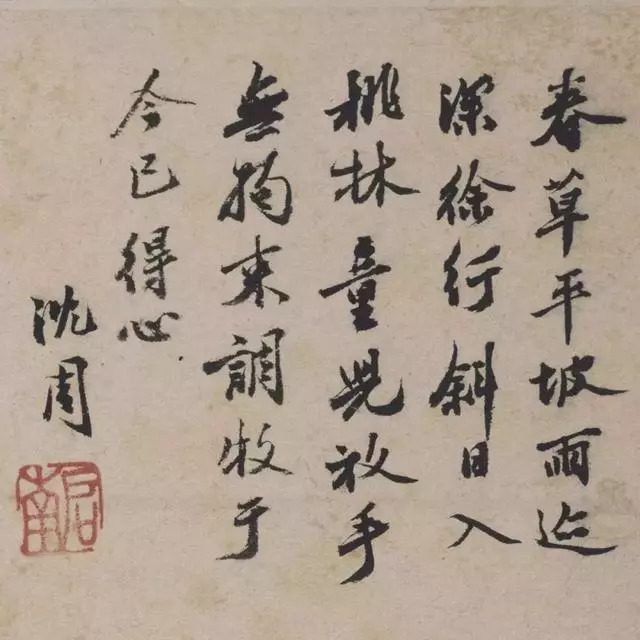 春草平坡雨迹
深徐行斜日入
桃林童兒放手
無拘束調牧于
今已得心
沈周
啟南